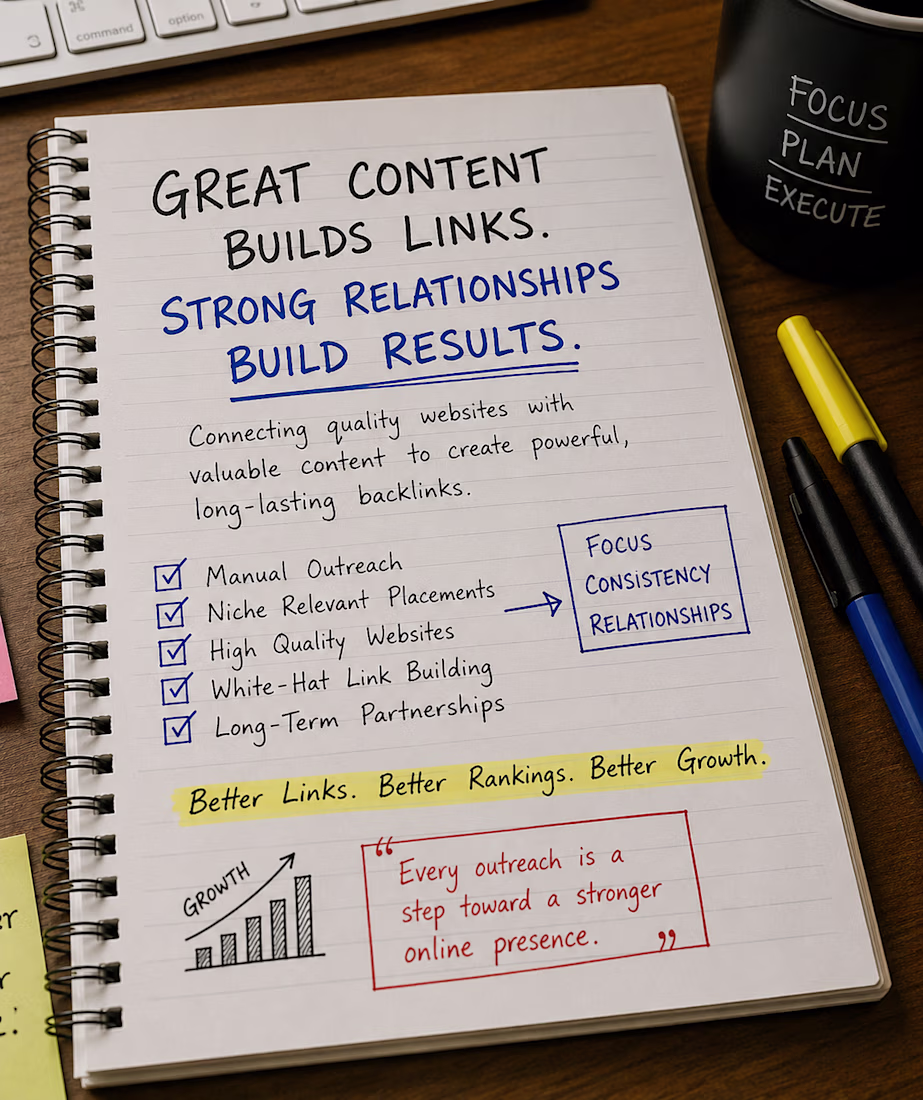 ⌘
command
option
FOCUS
PLAN
EXECUTE
GREAT CONTENT
BUILDS LINKS.
STRONG RELATIONSHIPS
BUILD RESULTS.
Connecting quality websites with
valuable content to create powerful,
long-lasting backlinks.
Manual Outreach
Niche Relevant Placements
High Quality Websites
White-Hat Link Building
Long-Term Partnerships
FOCUS
CONSISTENCY
RELATIONSHIPS
Better Links. Better Rankings. Better Growth.
GROWTH
“Every outreach is a
step toward a stronger
online presence.”